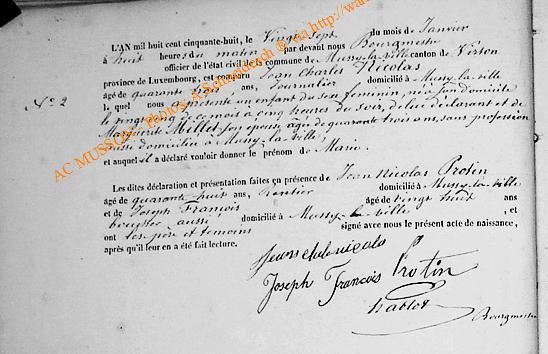 L'AN mil huit cent cinquante-huit, le Vingt sept du mois de Janvier
à huit heures du matin par devant nous Bourgmestre
officier de l'état civil de la commune de Mussy-la-ville canton de Virton
province de Luxembourg, est comparu Jean Charles Nicolas
âgé de quarante ans, Journalier domicilié à Mussy-la-ville
N° 2
lequel nous a présenté un enfant du sexe féminin, née en son domicile
le vingt de ce mois à cinq heures du soir, de lui déclarant et de
Marguerite Millet son épouse, âgée de quarante trois ans, sans profession
aussi domiciliée à Mussy-la-ville
et auquel il a déclaré vouloir donner le prénom de Marie.
Les dites déclaration et présentation faites en présence de Jean Nicolas Protin
âgé de quarante huit ans, Rentier domicilié à Mussy-la-ville
et de Joseph François âgé de vingt huit ans
aussi domicilié à Mussy-la-ville, et
ont les père et témoins signé avec nous le présent acte de naissance,
après qu'il leur en a été fait lecture.
Joseph François Protin
Bourgmestre
AC MUSSON - Photos